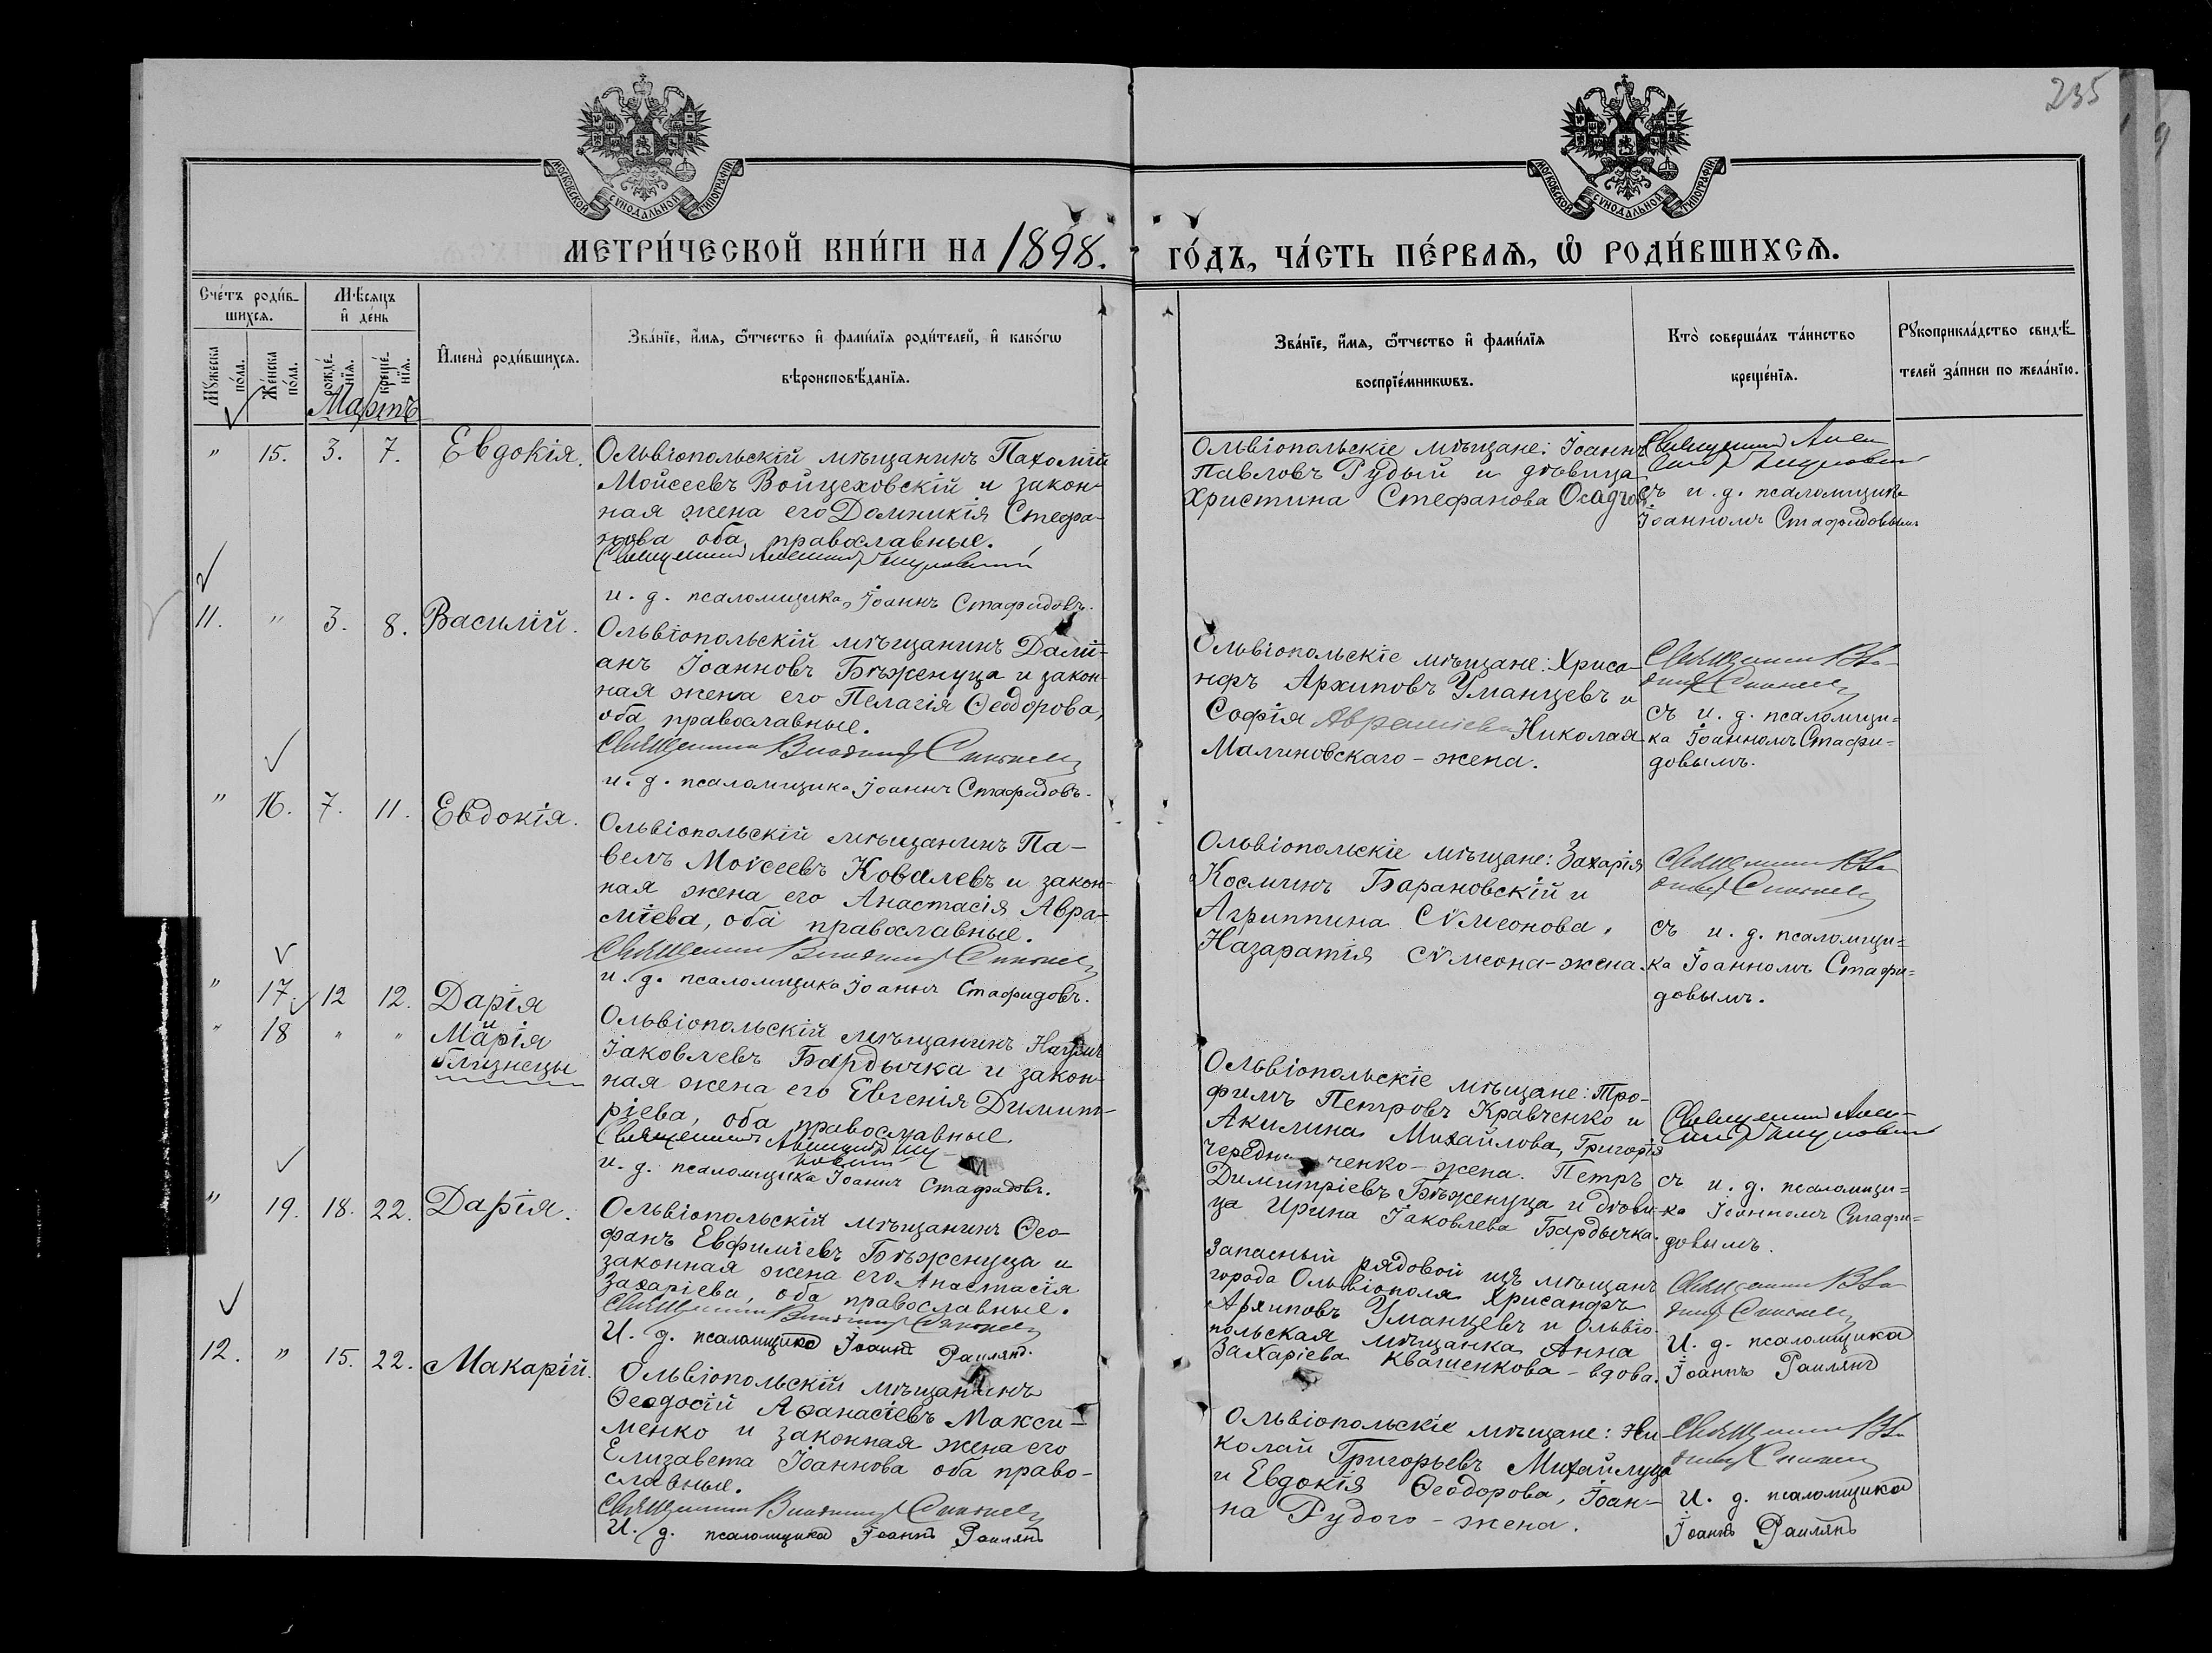 235
МОСКОВСКОЙ СѴНОДАЛЬНОЙ ТИПОГРАФІИ
МОСКОВСКОЙ СѴНОДАЛЬНОЙ ТИПОГРАФІИ
МЕТРИ́ЧЕСКОЙ КНИ́ГИ НА 1898. ГО́ДЪ, ЧА́СТЬ ПЕ́РВАѦ, Ѡ҆ РОДИ́ВШИХСѦ.
Сче́тъ роди́в-
шихсѧ.
Мꙋжеска по́ла.
Же́нска по́ла.
Мѣ́сѧцъ
и҆ де́нь
рожде́-
нїѧ.
креще́-
нїѧ.
И҆мена̀ роди́вшихсѧ.
Зва́нїе, и҆́мѧ, ѻ҆́тчество и҆ фами́лїѧ роди́телей, и҆ како́гѡ
вѣроисповѣ́данїѧ.
Зва́нїе, и҆́мѧ, ѻ҆́тчество и҆ фами́лїѧ
воспрїе́мникѡвъ.
Кто̀ соверша́лъ та́инство
креще́нїѧ.
Рꙋкоприкла́дство свидѣ́-
телей за́писи по жела́нїю.
Мартъ
" 15. 3. 7. Евдокія.
Ольвіопольскій мѣщанинъ Пахомій
Мойсеевъ Войцеховскій и закон-
ная жена его Домникія Стефа-
нова оба православные.
Священникъ
и. д. псаломщика, Іоаннъ Стафидовъ.
Ольвіопольскіе мѣщане: Іоаннъ
Павловъ Рудый и дѣвица
Христина Стефанова
Священникъ
съ и. д. псаломщика
Іоанномъ Стафидовымъ
11. " 3. 8. Василій.
Ольвіопольскій мѣщанинъ Дамі-
анъ Іоанновъ Бѣженуца и закон-
ная жена его Пелагія Ѳеодорова,
оба православные.
Священникъ Владимір
и. д. псаломщика Іоаннъ Стафидовъ.
Ольвіопольскіе мѣщане: Хриса-
нфъ Архиповъ Уманцевъ и
Софія Авраміева Николая
Малиновскаго - жена.
Священникъ Вла-
димір
съ и. д. псаломщи=
ка Іоанномъ Стафи=
довымъ.
" 16. 7. 11. Евдокія.
Ольвіопольскій мѣщанинъ Па-
велъ Моѵсеевъ Ковалевъ и закон-
ная жена его Анастасія Авра-
міева, оба православные.
Священникъ Владимір
и. д. псаломщика Іоаннъ Стафидовъ.
Ольвіопольскіе мѣщане: Захарія
Косминъ Барановскій и
Агриппина Сѵмеонова,
Назаратія Сѵмеона-жена.
Священникъ Вла
димір
съ и. д. псаломщи=
ка Іоанномъ Стафи=
довымъ.
" 17. 12 12. Дарія
и
" 18 " " Марія
близнецы
Ольвіопольскій мѣщанинъ Наумъ
Іаковлевъ Бардычка и закон-
ная жена его Евгенія Димит-
ріева, оба православные
Священникъ
и. д. псаломщика Іоаннъ Стафидовъ.
Ольвіопольскіе мѣщане: Тро-
фимъ Петровъ Кравченко и
Акилина Михайлова, Григорія
ченко - жена. Петръ
Димитріевъ Бѣженуца и дѣви-
ца Ирина Іаковлева Бардычка.
Священникъ
съ и. д. псаломщи=
ка Іоанномъ Стафи=
довымъ.
" 19. 18. 22. Дарія.
Ольвіопольскій мѣщанинъ Ѳео-
фанъ Евфиміевъ Бѣженуца и
законная жена его Анастасія
Захаріева, оба православные.
Священникъ Владимір
И. д. псаломщика Іоаннъ Раилянъ.
Запасный рядовой изъ мѣщанъ
города Ольвіополя Хрисанфъ
Архиповъ Уманцевъ и Ольвіо-
польская мѣщанка Анна
Захаріева Квашенкова - вдова.
Священникъ Вла
димір
И. д. псаломщика
Іоаннъ Раилянъ
12. " 15. 22. Макарій.
Ольвіопольскій мѣщанинъ
Ѳеодосій Аѳанасіевъ Макси-
менко и законная жена его
Елизавета Іоаннова оба право-
славные.
Священникъ Владимір
И. д. псаломщика Іоаннъ Раилянъ
Ольвіопольскіе мѣщане: Ни-
колай Григорьевъ Михайлуца
и Евдокія Ѳеодорова, Іоан-
на Рудого - жена.
Священникъ Вла
димір
И. д. псаломщика
Іоаннъ Раилянъ